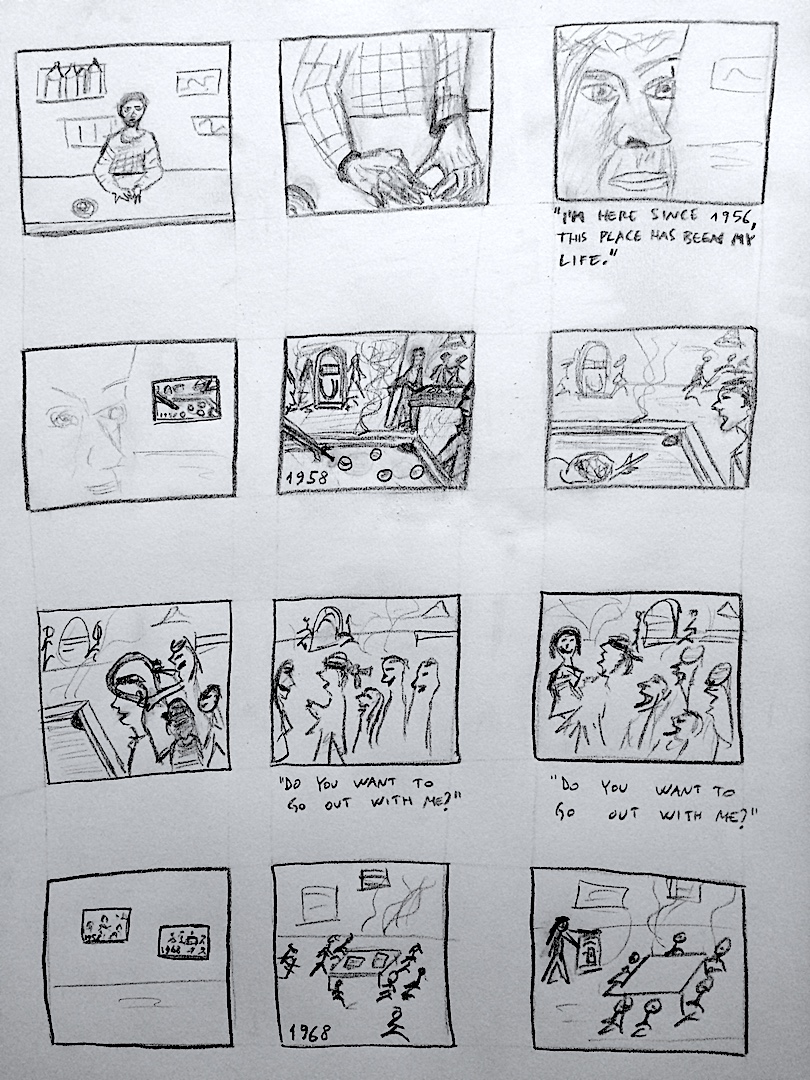 "I'M HERE SINCE 1956,
THIS PLACE HAS BEEN MY
LIFE."
1958
"DO YOU WANT TO
GO OUT WITH ME?"
"DO YOU WANT TO
GO OUT WITH ME?"
1968
1968